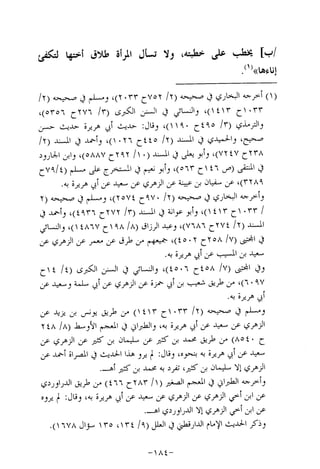 /ب] يخطب على خطبته، ولا تسأل المرأة طلاق أختها لتكفئ
إناءها»(١).
(١) أخرجه البخاري في صحيحه (٢/ ٧٥٢ح ٢٠٣٣)، ومسلم في صحيحه (٢/
١٠٣٣ح ١٤١٣)، والنسائي في السنن الكبرى (٣/ ٢٧٦ح ٥٣٥٦)،
والترمذي (٣/ ٤٩٥ح ١١٩٠)، وقال: حديث أبي هريرة حديث حسن
صحيح، والحميدي في المسند (٢/ ٤٤٥ح ١٠٢٦)، وأحمد في المسند (٢/
٢٣٨ح ٧٢٤٧)، وأبو يعلى في المسند (١٠/ ٢٩٢ح ٥٨٨٧)، وابن الجارود
في المنتقى (ص ١٤٦ح ٥٦٣)، وأبو نعيم في المستخرج على مسلم (٤/٧٩ح
٣٢٨٩)، عن سفيان بن عيينة عن الزهري عن سعيد عن أبي هريرة به.
وأخرجه البخاري في صحيحه (٢/ ٩٧٠ح ٢٥٧٤)، ومسلم في صحيحه (٢
/ ١٠٣٣ح ١٤١٣)، وأبو عوانة في المسند (٣/ ٢٧٢ح ٤٩٣٦)، وأحمد في
المسند (٢/ ٢٧٤ح ٧٦٨٦)، وعبد الرزاق (٨/ ١٩٨ح ١٤٨٦٧)، والنسائي
في المجتبى (٧/ ٢٥٨ح ٤٥٠٢)، جميعهم من طرق عن معمر عن الزهري عن
سعيد بن المسيب عن أبي هريرة به.
وفي المجتبى (٧/ ٤٥٨ح ٤٥٠٦)، والنسائي في السنن الكبرى (٤/ ١٤ح
٦٠٩٧)، من طريق شعيب بن أبي حمزة عن الزهري عن أبي سلمة وسعيد عن
أبي هريرة به.
ومسلم في صحيحه (٢/ ١٠٣٣ح ١٤١٣) من طريق يونس بن يزيد عن
الزهري عن سعيد عن أبي هريرة به، والطبراني في المعجم الأوسط (٨/ ٢٤٨
ح ٨٥٤٠) من طريق محمد بن كثير عن سليمان بن كثير عن الزهري عن
سعيد عن أبي هريرة به بنحوه، وقال: لم يرو هذا الحديث في المصراة أحمد عن
الزهري إلا سليمان بن كثير، تفرد به محمد بن كثير أهـ.
وأخرجه الطبراني في المعجم الصغير (١/ ٢٨٣ح ٤٦٦) من طريق الدراوردي
عن ابن أخي الزهري عن الزهري عن سعيد عن أبي هريرة به، وقال: لم يروه
عن ابن أخي الزهري إلا الدراوردي اهـ.
وذكر الحديث الإمام الدارقطني في العلل (٩/ ١٣٤، ١٣٥ سؤال ١٦٧٨).
-١٨٤-